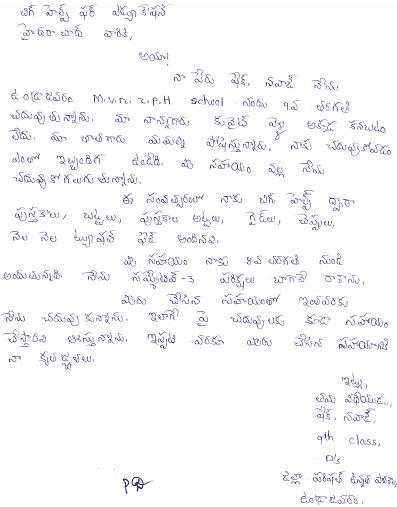 బిగ్ హెల్ప్ ఫర్ ఎడ్యుకేషన్
హైదరాబాదు వారికి,
అయా!
నా పేరు షేక్. నవాజ్ నేను
ఉండ్రాజవరం M.v.n. z.p.H school నందు 9వ తరగతి
చదువుతున్నాను. మా నాన్నగారు కువైట్ వెళ్లి అక్కడ కనబడటం
లేదు. మా తాతగారు మమల్ని పోషిస్తున్నారు. నాకు చదువుకోవడం
ఎంతో ఇబ్బందిగ ఉండేది. మీ సహాయం వల్ల నేను
చదువుకోగలుగుతున్నాను.
ఈ సంవత్సరంలో నాకు బిగ్ హెల్ప్ ద్వారా
పుస్తకాలు, బట్టలు, పుస్తకాల అట్టలు, గైడ్‌లు, చెప్పులు,
నెల నెల ట్యూషన్ ఫీజ్ అందినవి.
మీ సహాయం నాకు 8వ తరగతి నుండి
అందుతున్నది. నేను సమ్మేటివ్-3 పరీక్షలు బాగానే రాశాను.
మీరు చేసిన సహాయంలో ఇంతవరకు
నేను చదువుకున్నాను. ఇలాగే పై చదువులకు కూడా సహాయం
చేస్తారని ఆశిస్తున్నాను. ఇప్పటి వరకూ మీరు చేసిన సహాయానికి
నా కృతజ్ఞతలు.
ఇట్లు,
తమ విధేయుడు,
షేక్. నవాజ్,
9th class,
జిల్లా పరిషత్ ఉన్నత పాఠశాల,
ఉండ్రాజవరం.